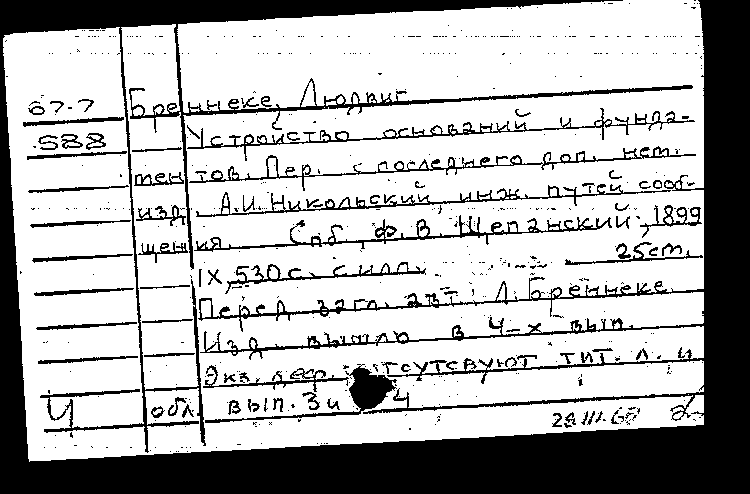 67-7 Бреннеке, Людвиг
588 Устройство оснований и фунда-
мен тов. Пер. с последнего доп. нем.
изд. А.И. Никольский, инж. путей сооб-
щения. Спб, Ф. В. Щепанский, 1899
IX, 530 с. с илл. 25 см.
Перед загл. авт: Л. Бреннеке
Изд. вышло в 4-х вып.
Экз. деф. отсутсвуют тит. л. и
Ч обл. вып. 3 и 4
28.III.68